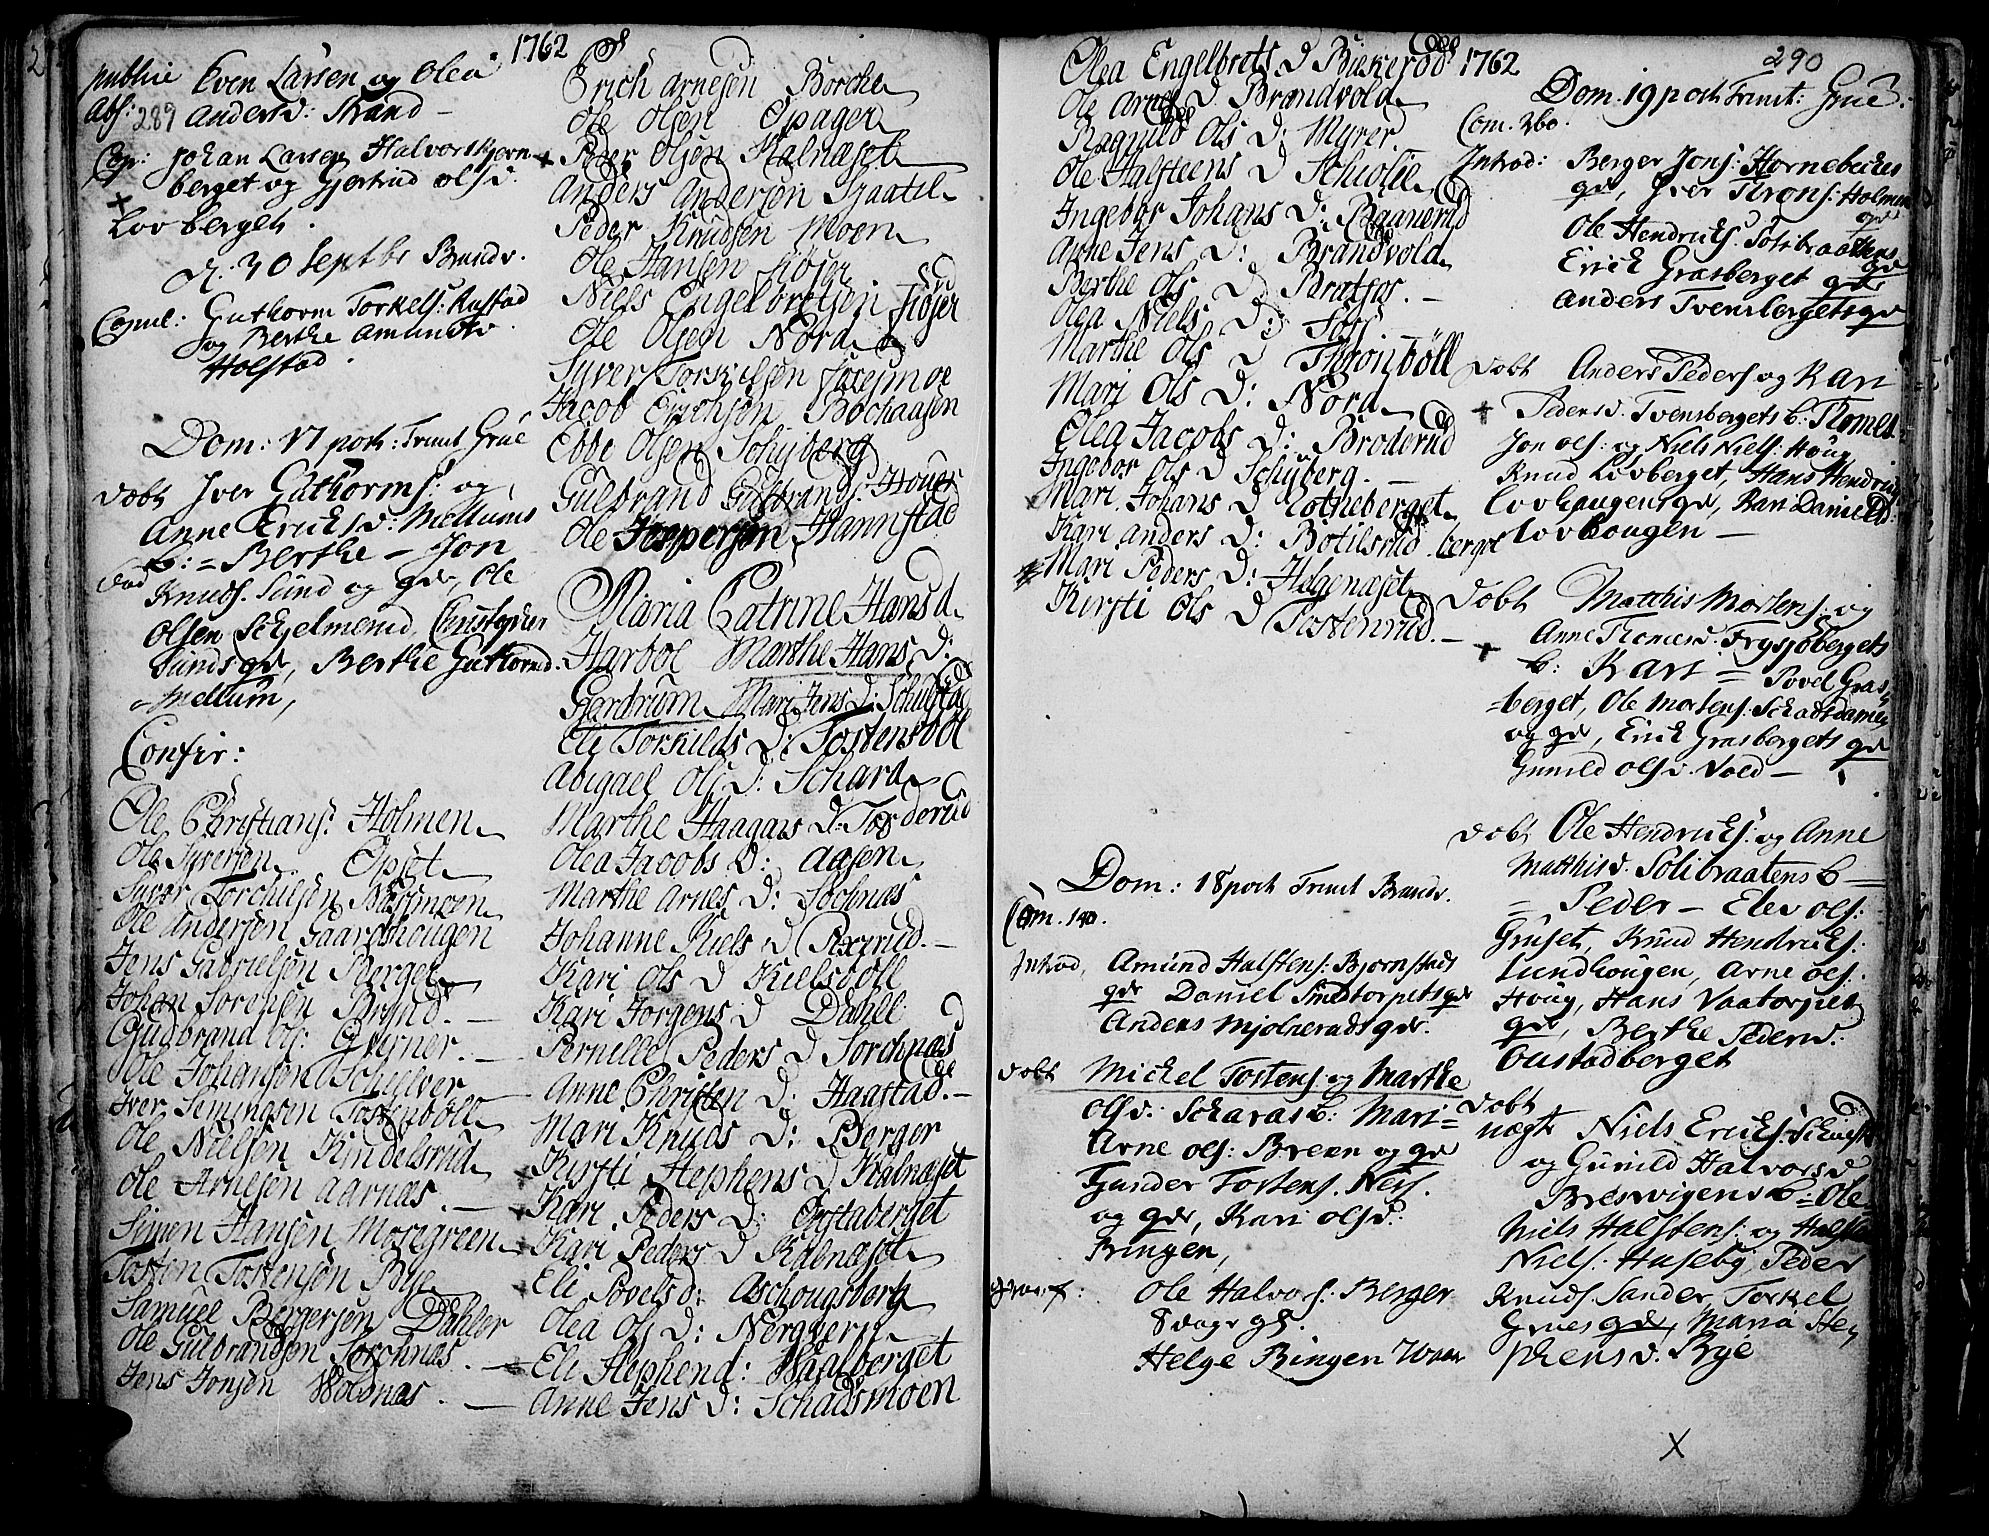 1762
289
public Even Larsen og Olea
abs: Andersd: Strand
Cop: Johan Larsen Halvorskjern-
berget og Gjertrud Olsd.
Lovberget.
D. 30 Septbr Brandv.
Copul: Guthorm Torkels: Rustad
og Berthe Amundsd.
Holstad.
Dom: 17 post: Trinit Grue
Døbt Iver Guthorms: og
Anne Ericksd: Mellums
b: = Berthe – Jon
Knuds. Sund og qde, Ole
Olsen Schjelmerud, Christopher
Sunds qde, Berthe Guthormd:
Mellum,
Confir:
Ole Christians: Holmen
Ole Syversen Opset
Syver Torchilsen
Ole Andersen Gaardshougen
Jens Gabrielsen Berger
Johan Sørensen Brynd.
Gudbrand Ols: Qverner.
Ole Johansen Schielver
Iver Semingsen Tostenbøll
Ole Nielsen Kindelsrud
Ole Arnesen Aarnæs.
Simen Hansen Mosegreen
Tosten Tostensøn Bye
Samuel Bergersen Dahler
Ole Gulbrandsen Sorchnæs.
Jens Jonsen Woldnæs.
Erich Arnesen Borche
Ole Olsen Opager
Peder Olsen Kalnæset
Anders Andersen Graatil
Peder Knudsen Moen
Ole Hansen Siøjer
Niels Engelbretsen Siøjer
Ole Olsen Nord
Syver Torkilsen
Jacob Erichsen Bochaagen
Ebbe Olsen Schyberg
Gulbrand Gulbrands: Houer
Ole Jespersen Hannstad
Maria Catrine Hansd.
Harboe Marthe Hans D:
Gjerdrum Mari Jens D: Schulstad
Eli Torkilds D: Tostensbøl
Abigael Ols D: Schara
Marthe Haagans D: Torderud
Olea Jacobs D: Aasen
Marthe Arnes D: Sochnæs
Johanne Kiels D
Kari Ols D Kielsbøll
Kari Jorgens D Dahel
Pernille Peders D Sorchnæs
Anne Christen D: Haastad.
Mari Knuds D: Berger
Kirsti Stephens D Kalnæset
Kari Peders D: Opstaberget
Kari Peders D Kalnæset
Eli Povels d: Aschougsberg
Olea Ols D: Nergvern
Eli Stephend: Waalberget
Anne Jens D: Schadsmoen
1762
290
Olea Engelbrets D Buskerod
Ole Arnes D Brandvold
Ragnild Ols D: Myrer.
Ole Halsteens D Schiolie
Ingebor Johans D: Raanerud
Arne Jens D: Brandvold
Berthe Ols D Bratfos.
Olea Niels D: Fors
Marthe Ols D Thronbøll
Mari Ols D: Nord
Olea Jacobs D: Broderud
Ingebor Ols D Schyberg.
Mari Johans D Cotneberget
Kari Anders D: Botilsrud
Mari Peders D: Helgenæset
Kirsti Ols D Tostenrud.
Dom: 18 post Trinit Brandv.
Com. 140.
Introd, Amund Halstens: Bjørnstads
qde Daniel Smestorpets qde
Anders Mjolnerads qde.
Døbt Michel Tostens: og Marthe
Olsd: Scharas b: Mari =
Arne Ols: Breen og qde
Gunder Tostens. Ness.
og qde, Kari Olsd:
Ringen,
Ole Halvors: Berger
Helge Ringen
Dom. 19 post Trinit: Grue.
Com. 260.
Introd: Berger Jons: Hornebeckes
qde, Iver Trons: Holmen
qde
Ole Hendrichs: Solibraathens
qde
Erick Grasberget qde
Anders Tvensbergets qde
Døbt Anders Peders og Kari
Pedersd: Tvensbergets b: Thomes
Jon Ols: og Niels Niels: Houg
Knud Lovberget, Hans Hendrichs
Lovhaugens qde, Kari Danields:
Lovhougen
Døbt Matthis Mortens: og
Anne Thomesd. Frysjobergets
b: Kari = Povel Gras-
berget, Ole Mortens: Schadsdamen
og qde, Erick Grasbergets qde
Gunild Olsd. Vold
Døbt Ole Hendrichs: og Anne
Matthisd. Solibraatens b
= Peder – Elev Ols:
Gruset, Knud Hendrichs:
Lundhougen, Arne Ols:
Houg, Hans Vaatorpet
qde, Berthe Pedersd:
Oustadberget
Døbt
uægte Niels Ericks:
og Gunild Halvorsd
Bredvigens b: Ole
Niels Halstens: og Halsten
Niels: Huseby, Peder
Knuds. Sander, Torkel
Grues qde, Maria Ste-
phensd. Bye
X